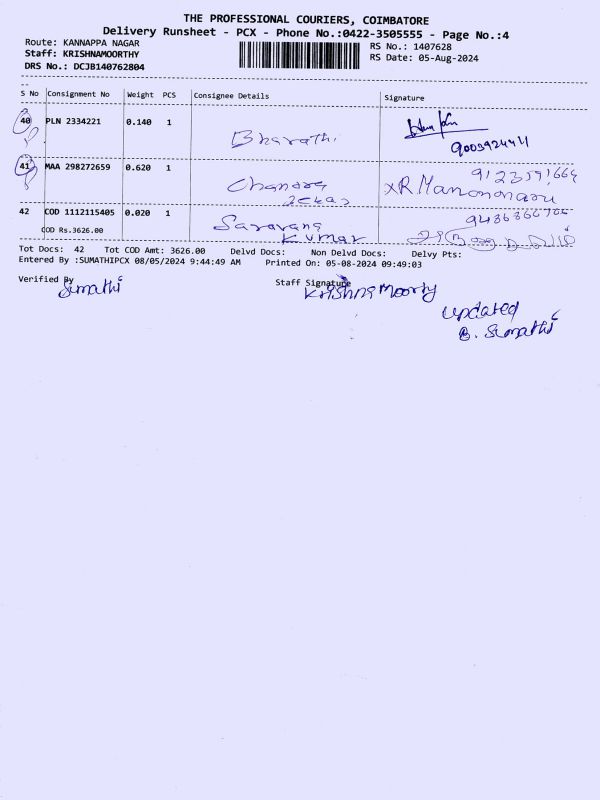 THE PROFESSIONAL COURIERS, COIMBATORE
Delivery Runsheet - PCX - Phone No.:0422-3505555 - Page No.:4
Route: KANNAPPA NAGAR
Staff: KRISHNAMOORTHY
DRS No.: DCJB140762804
RS No.: 1407628
RS Date: 05-Aug-2024
S No Consignment No Weight PCS Consignee Details Signature
40 PLN 2334221 0.140 1 Bharathi
41 MAA 298272659 0.620 1 Chandra
42 COD 1112115405 0.020 1 Saravana
Kumar
COD Rs.3626.00
Tot Docs: 42 Tot COD Amt: 3626.00 Delvd Docs: Non Delvd Docs: Delvy Pts:
Entered By :SUMATHIPCX 08/05/2024 9:44:49 AM Printed On: 05-08-2024 09:49:03
Verified By Sumathi
Staff Signature Krishna Moorty
updated
B. Sumathi